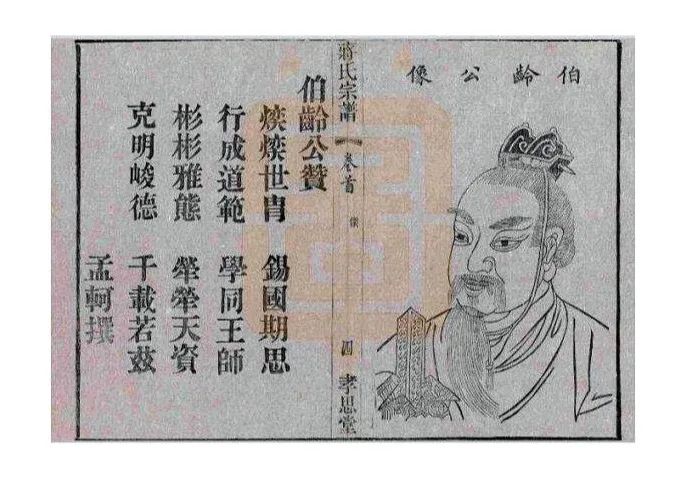 伯齡公像
蔣氏宗譜
卷首
像
四
孝思堂
伯齡公贊
煥煥世冑 錫國期思
行成道範 學同王師
彬彬雅態 犖犖天資
克明峻德 千載若茲
孟軻撰